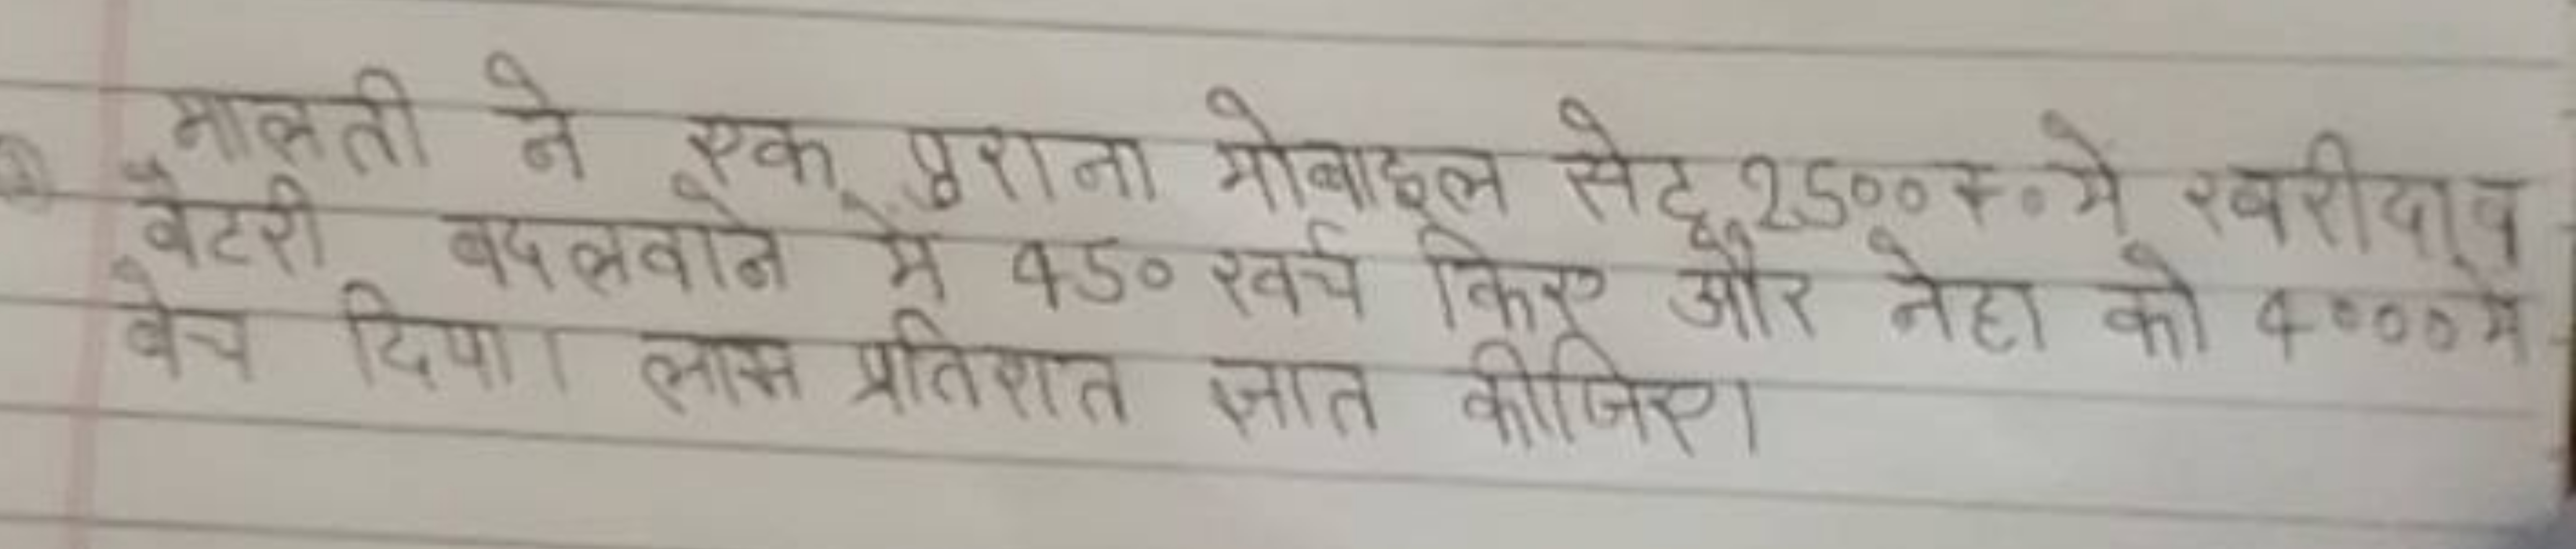 मालती ने एक पुराना मोबाइल सेट 2500 रु० में खरीदा व
बैटरी बदलवाने में 450 खर्च किए और नेहा को 4000 में
बेच दिया। लाभ प्रतिशत ज्ञात कीजिए।